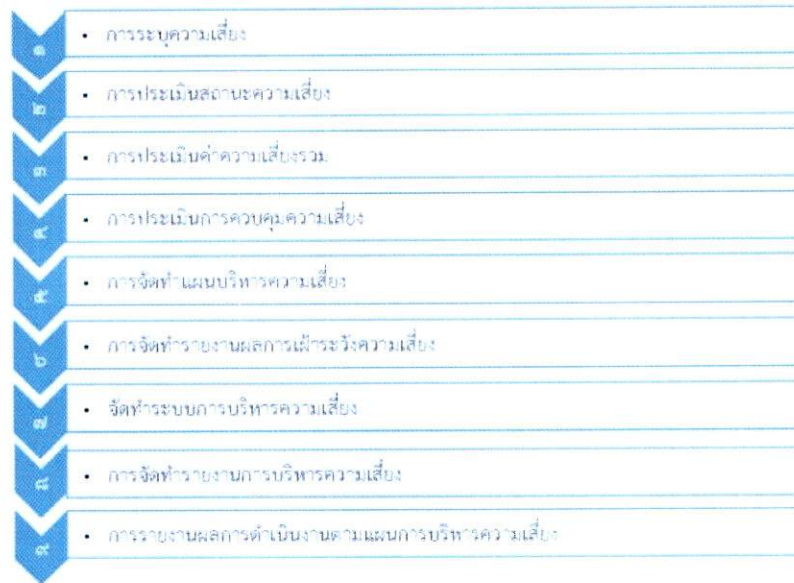 ๑
• การระบุความเสี่ยง
๒
• การประเมินสถานะความเสี่ยง
๓
• การประเมินค่าความเสี่ยงรวม
๔
• การประเมินการควบคุมความเสี่ยง
๕
• การจัดทำแผนบริหารความเสี่ยง
๖
• การจัดทำรายงานผลการเฝ้าระวังความเสี่ยง
๗
• จัดทำระบบการบริหารความเสี่ยง
๘
• การจัดทำรายงานการบริหารความเสี่ยง
๙
• การรายงานผลการดำเนินงานตามแผนการบริหารความเสี่ยง